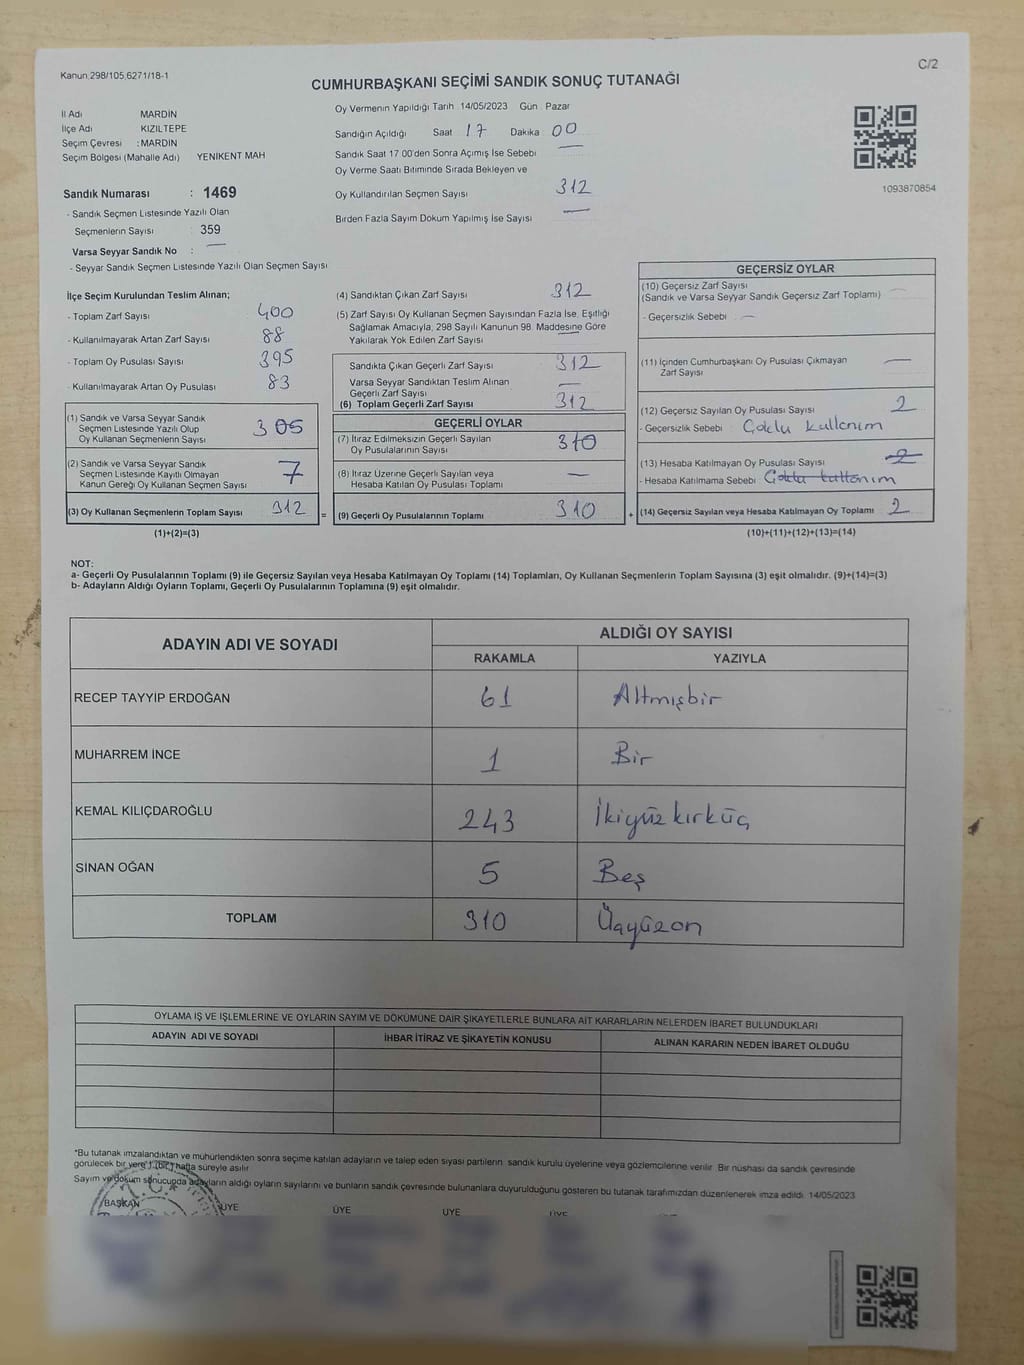 Kanun 298/105,6271/18-1
C/2
CUMHURBAŞKANI SEÇİMİ SANDIK SONUÇ TUTANAĞI
İl Adı MARDİN
İlçe Adı KIZILTEPE
Seçim Çevresi : MARDİN
Seçim Bölgesi (Mahalle Adı) YENİKENT MAH
Sandık Numarası : 1469
- Sandık Seçmen Listesinde Yazılı Olan
Seçmenlerin Sayısı 359
Varsa Seyyar Sandık No : —
- Seyyar Sandık Seçmen Listesinde Yazılı Olan Seçmen Sayısı
Oy Vermenin Yapıldığı Tarih 14/05/2023 Gün Pazar
Sandığın Açıldığı Saat 17 Dakika 00
Sandık Saat 17 00'den Sonra Açımış İse Sebebi —
Oy Verme Saati Bitiminde Sırada Bekleyen ve
Oy Kullandırılan Seçmen Sayısı 312
Birden Fazla Sayım Döküm Yapılmış İse Sayısı —
1093870854
İlçe Seçim Kurulundan Teslim Alınan;
- Toplam Zarf Sayısı 400
- Kullanılmayarak Artan Zarf Sayısı 88
- Toplam Oy Pusulası Sayısı 395
- Kullanılmayarak Artan Oy Pusulası 83
(1) Sandık ve Varsa Seyyar Sandık
Seçmen Listesinde Yazılı Olup
Oy Kullanan Seçmenlerin Sayısı 305
(2) Sandık ve Varsa Seyyar Sandık
Seçmen Listesinde Kayıtlı Olmayan
Kanun Gereği Oy Kullanan Seçmen Sayısı 7
(3) Oy Kullanan Seçmenlerin Toplam Sayısı 312 =
(1)+(2)=(3)
(4) Sandıktan Çıkan Zarf Sayısı 312
(5) Zarf Sayısı Oy Kullanan Seçmen Sayısından Fazla İse, Eşitliği
Sağlamak Amacıyla, 298 Sayılı Kanunun 98. Maddesine Göre
Yakılarak Yok Edilen Zarf Sayısı —
Sandıkta Çıkan Geçerli Zarf Sayısı 312
Varsa Seyyar Sandıktan Teslim Alınan
Geçerli Zarf Sayısı —
(6) Toplam Geçerli Zarf Sayısı 312
GEÇERLİ OYLAR
(7) İtiraz Edilmeksizin Geçerli Sayılan
Oy Pusulalarının Sayısı 310
(8) İtiraz Üzerine Geçerli Sayılan veya
Hesaba Katılan Oy Pusulası Toplamı —
(9) Geçerli Oy Pusulalarının Toplamı 310 +
GEÇERSİZ OYLAR
(10) Geçersiz Zarf Sayısı
(Sandık ve Varsa Seyyar Sandık Geçersiz Zarf Toplamı) —
- Geçersizlik Sebebi —
(11) İçinden Cumhurbaşkanı Oy Pusulası Çıkmayan
Zarf Sayısı —
(12) Geçersiz Sayılan Oy Pusulası Sayısı 2
- Geçersizlik Sebebi Çoklu kullanım
(13) Hesaba Katılmayan Oy Pusulası Sayısı 2
- Hesaba Katılmama Sebebi Çoklu kullanım
(14) Geçersiz Sayılan veya Hesaba Katılmayan Oy Toplamı 2
(10)+(11)+(12)+(13)=(14)
NOT:
a- Geçerli Oy Pusulalarının Toplamı (9) ile Geçersiz Sayılan veya Hesaba Katılmayan Oy Toplamı (14) Toplamları, Oy Kullanan Seçmenlerin Toplam Sayısına (3) eşit olmalıdır. (9)+(14)=(3)
b- Adayların Aldığı Oyların Toplamı, Geçerli Oy Pusulalarının Toplamına (9) eşit olmalıdır.
ADAYIN ADI VE SOYADI ALDIĞI OY SAYISI
RAKAMLA YAZIYLA
RECEP TAYYİP ERDOĞAN 61 Altmışbir
MUHARREM İNCE 1 Bir
KEMAL KILIÇDAROĞLU 243 İkiyüzkırküç
SİNAN OĞAN 5 Beş
TOPLAM 310 Üçyüzon
OYLAMA İŞ VE İŞLEMLERİNE VE OYLARIN SAYIM VE DÖKÜMÜNE DAİR ŞİKAYETLERLE BUNLARA AİT KARARLARIN NELERDEN İBARET BULUNDUKLARI
ADAYIN ADI VE SOYADI İHBAR İTİRAZ VE ŞİKAYETİN KONUSU ALINAN KARARIN NEDEN İBARET OLDUĞU
*Bu tutanak imzalandıktan ve mühürlendikten sonra seçime katılan adayların ve talep eden siyasi partilerin sandık kurulu üyelerine veya gözlemcilerine verilir. Bir nüshası da sandık çevresinde
görülecek bir yere 1 (bir) hafta süreyle asılır
Sayım ve döküm sonucunda adayların aldığı oyların sayılarını ve bunların sandık çevresinde bulunanlara duyurulduğunu gösteren bu tutanak tarafımızdan düzenlenerek imza edildi. 14/05/2023
BAŞKAN ÜYE ÜYE ÜYE ÜYE